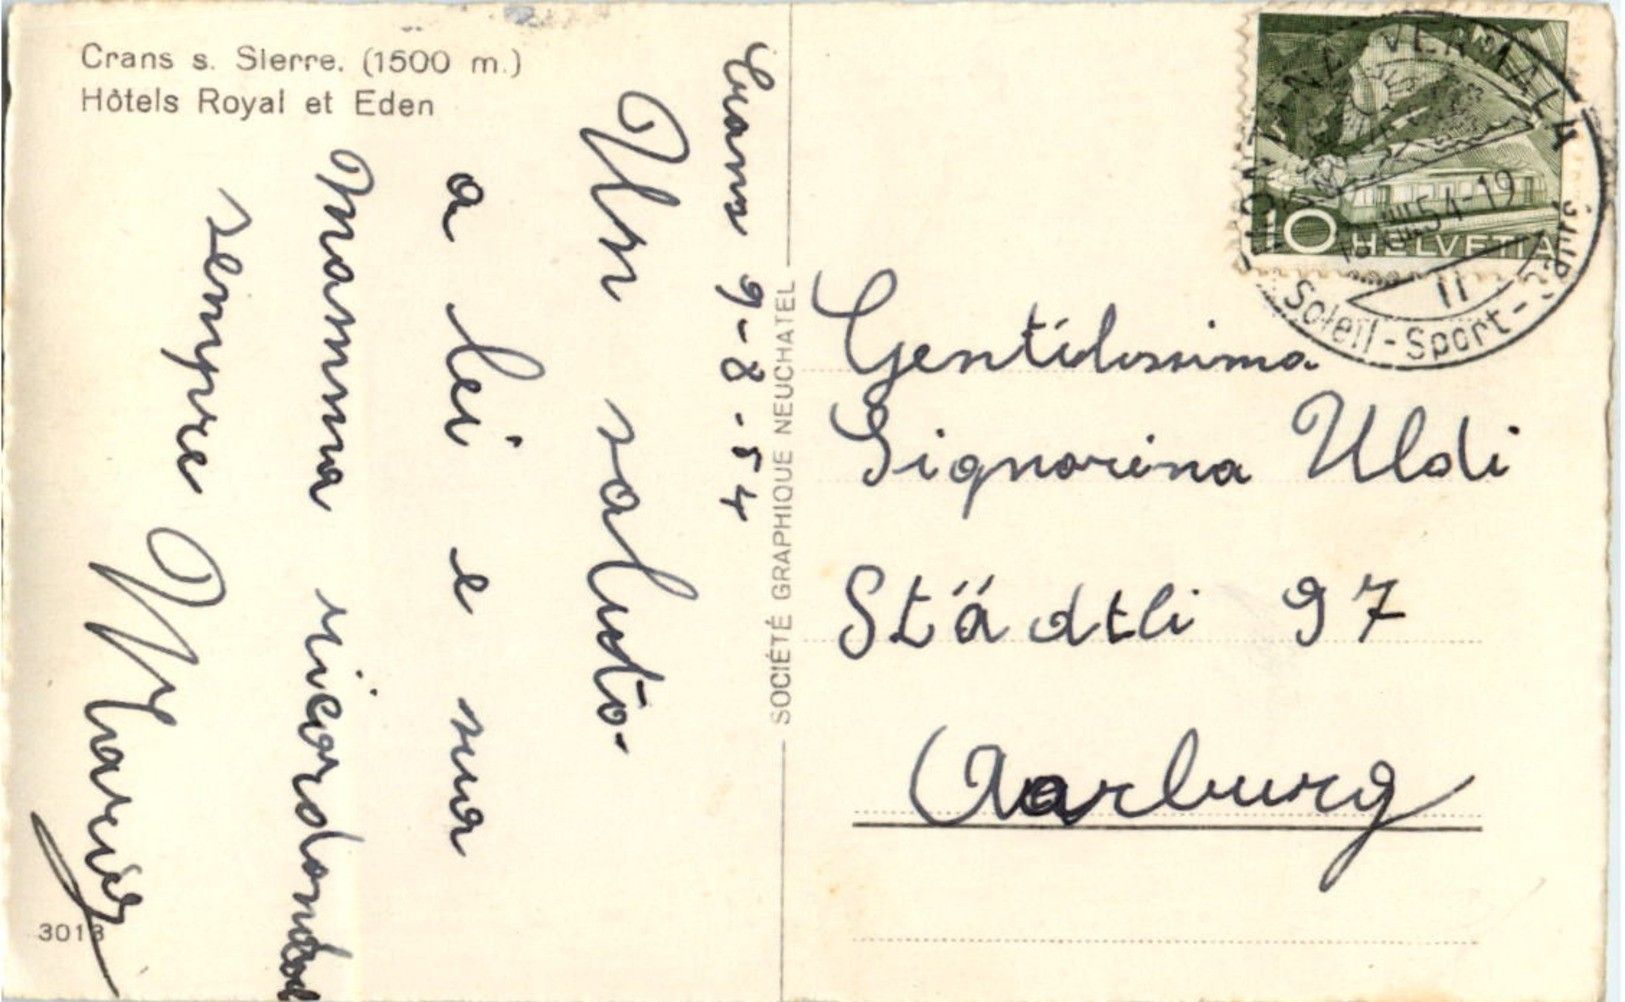 Crans s. Sierre. (1500 m.)
Hôtels Royal et Eden
Crans 9-8-54
Un saluto
a lei e sua
mamma ricordandola
sempre
3013
SOCIÉTÉ GRAPHIQUE NEUCHATEL
MONTANA-VERMALA
54-19
10 HELVETIA
II
Soleil-Sport-
Gentilissima
Signorina Uldi
Städtli 97
Aarburg